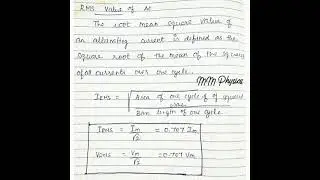 RMS Value of AC
The root mean square value of
an alternating current is defined as the
square root of the mean of the squares
of all currents over one cycle.
MM Physics
IRMS = √ Area of one cycle of square wave
Base length of one cycle
IRMS = Im/√2 = 0.707 Im
VRMS = Vm/√2 = 0.707 Vm